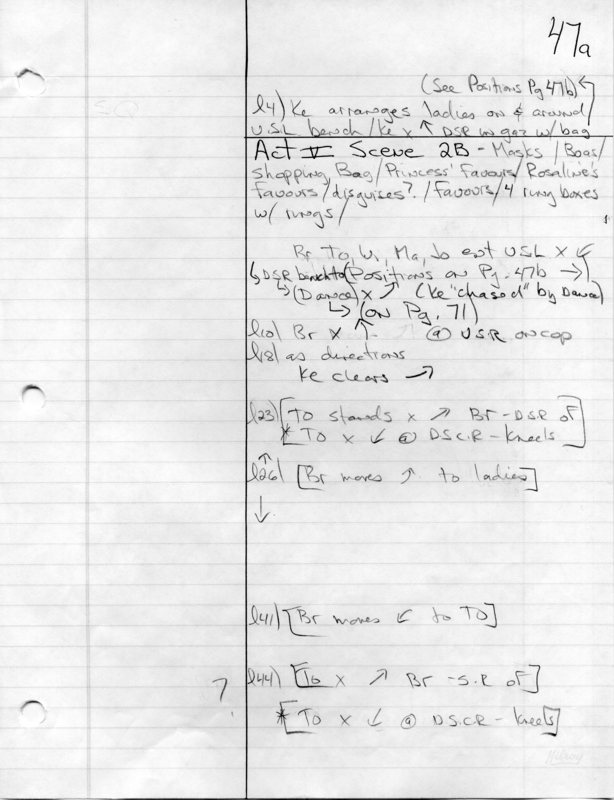 47a
(See Positions Pg 47b) ↰
l4) Ke arranges ladies on & around
U.S.L bench / Ke x ↑ DSR in gaz w/ bag
Act V Scene 2B - Masks / Boas/
Shopping Bag/ Princess' Favours/ Rosaline's
Favours/ disguises? / Favours/ 4 ring boxes
w/ rings/
Br To, Wi, Ma, Jo ent USL X ↙
↳ DSR bench to (Positions on Pg. 47b →)
↳ (Dance) x ↗ (Ke "chased" by Dance)
↳ (on Pg. 71)
l10) Br x ↑ @ USR on cop
l18) as directions
Ke clears →
l23) [To stands x ↗ Br - DSR of
* To x ↙ @ DSCR - kneels]
↑
l26) [Br moves ↗ to ladies]
↓
l41) [Br moves ↙ to To]
7 l44) [To x ↗ Br - S.R of]
* [To x ↙ @ DSCR - kneels]
Hilroy